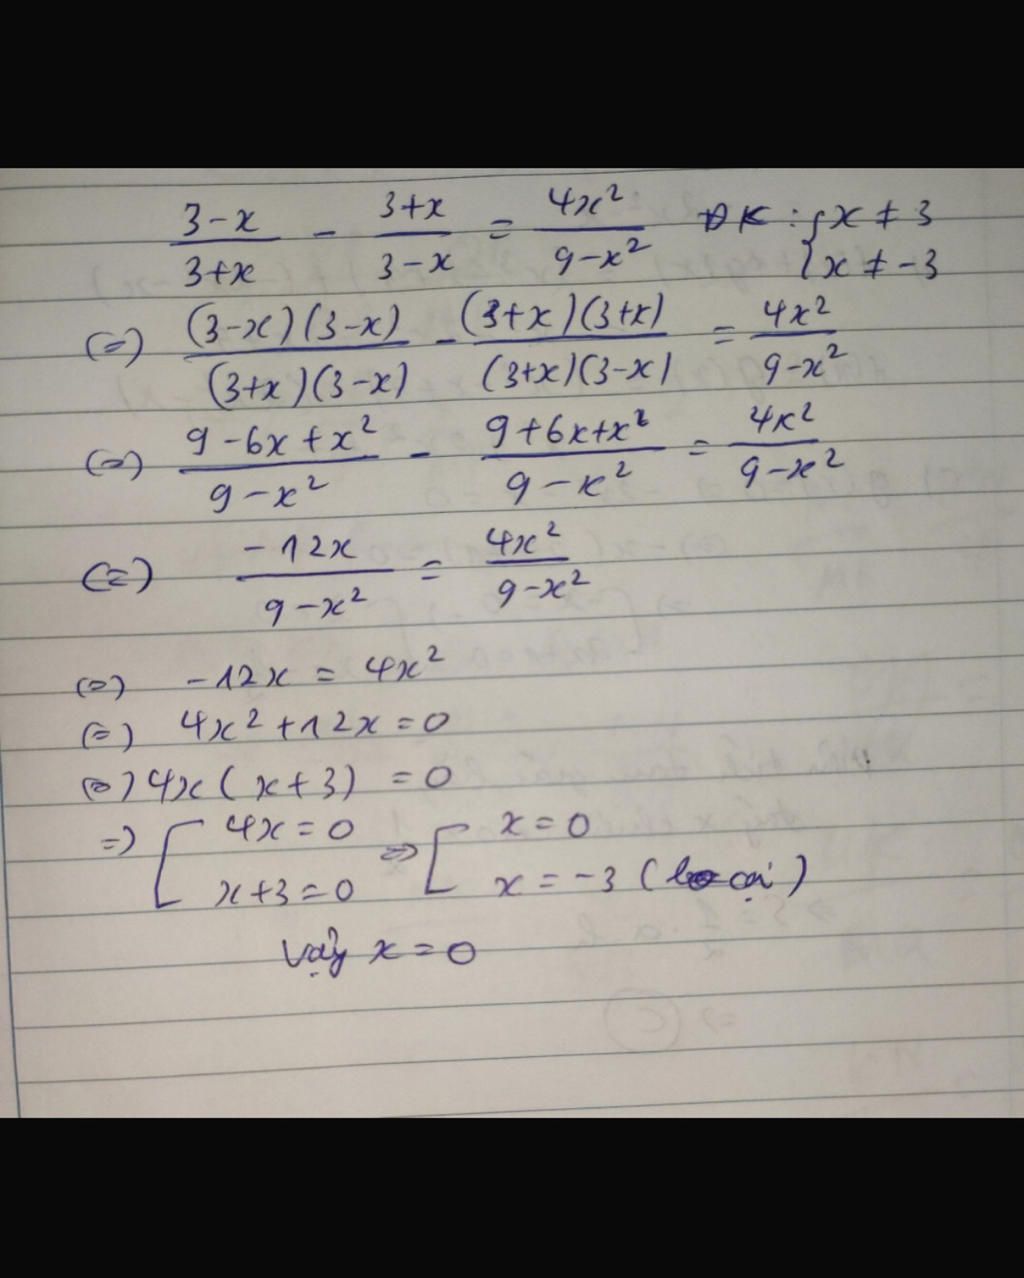 (3-x)/(3+x) - (3+x)/(3-x) = 4x²/(9-x²) ĐK: { x ≠ 3
{ x ≠ -3
(=) (3-x)(3-x)/(3+x)(3-x) - (3+x)(3+x)/(3+x)(3-x) = 4x²/(9-x²)
(=) (9-6x+x²)/(9-x²) - (9+6x+x²)/(9-x²) = 4x²/(9-x²)
(=) -12x/(9-x²) = 4x²/(9-x²)
(=) -12x = 4x²
(=) 4x²+12x=0
(=) 4x(x+3) = 0
=) [ 4x=0 => [ x=0
[ x+3=0 [ x=-3 (loại)
Vậy x=0